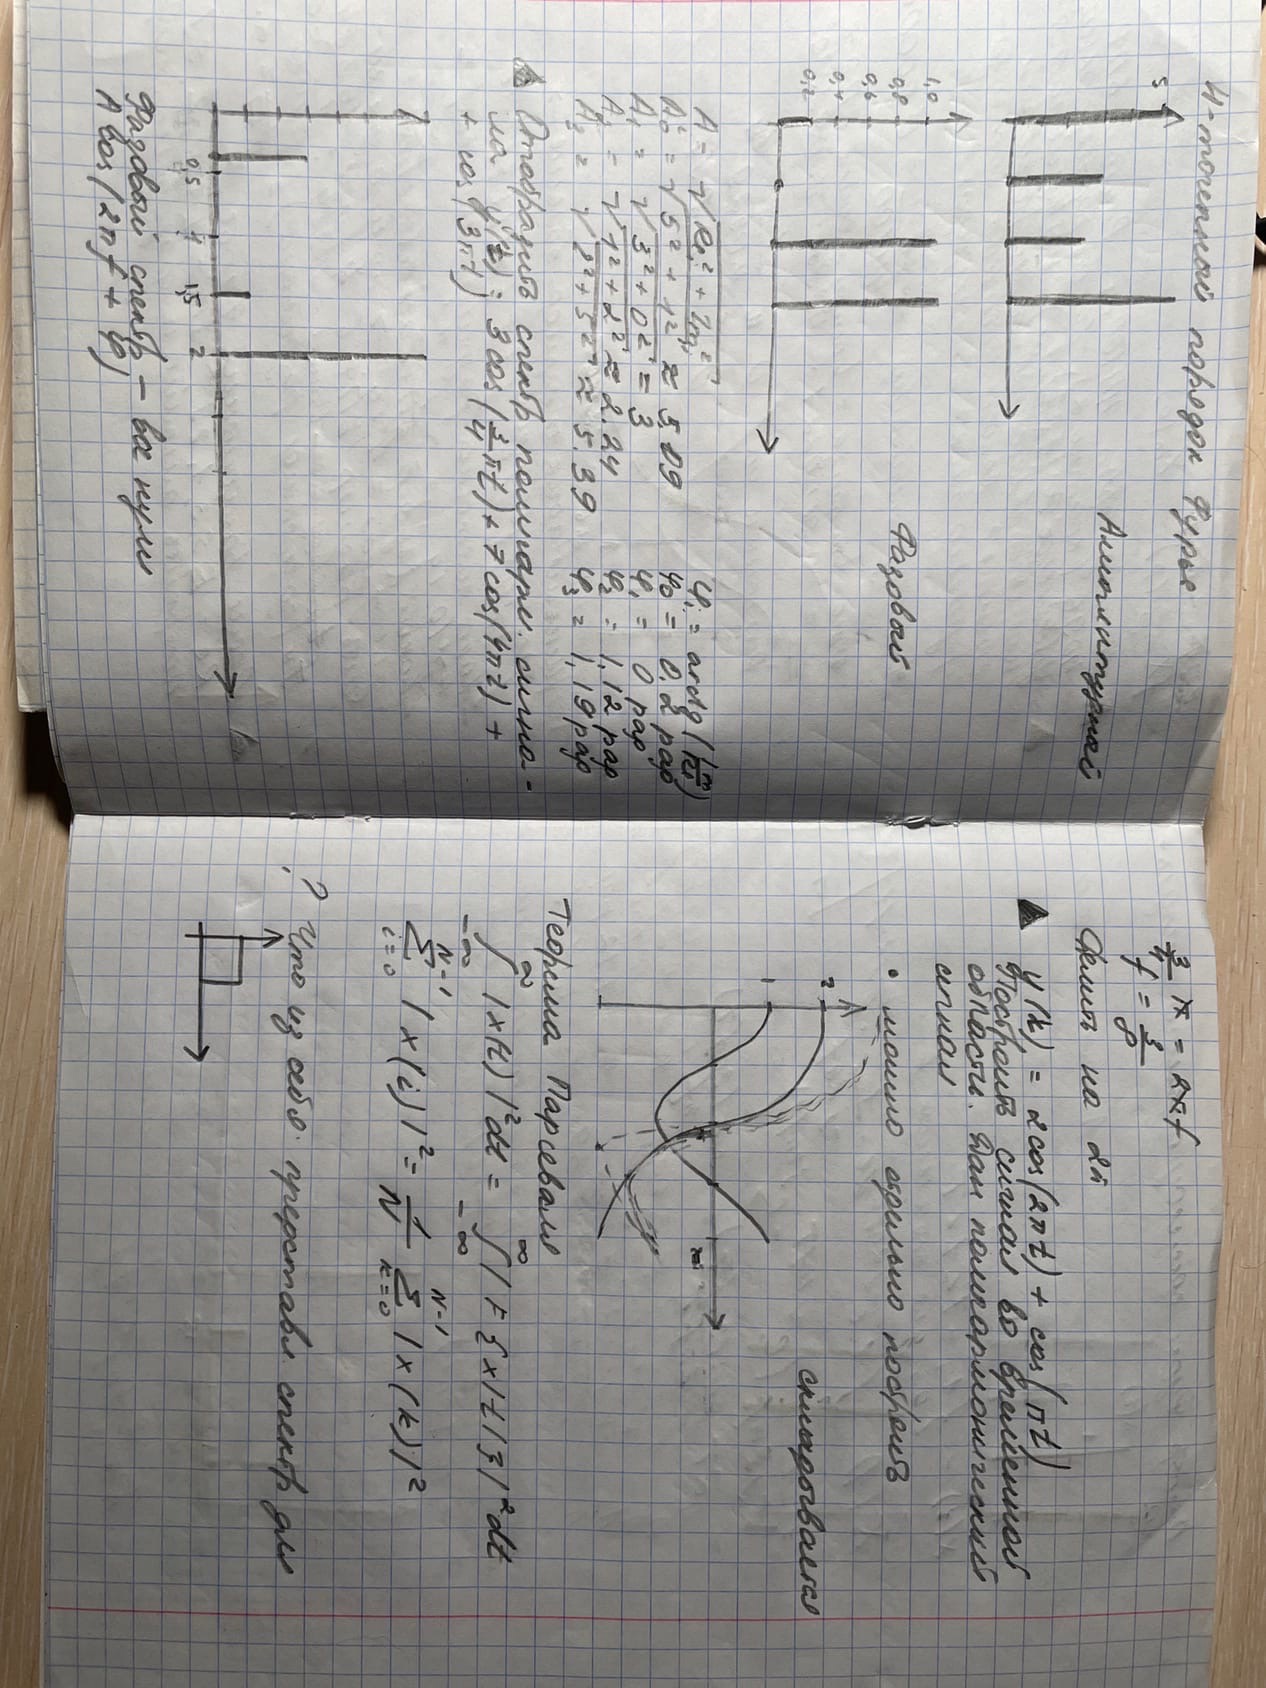 4-точечный порядок Фурье
5
Амплитудный
1,0
0,8
0,6
0,4
0,2
Фазовый
A = √(Re_i² + Im_i²)
A₀ = √(5² + 1²) ≈ 5.09
A₁ = √(3² + 0²) = 3
A₂ = √(1² + 2²) ≈ 2.24
A₃ = √(2² + 5²) ≈ 5.39
φ_i = arctg(Im/Re)
φ₀ = 0.2 рад
φ₁ = 0 рад
φ₂ = 1,12 рад
φ₃ = 1,19 рад
Отобразить спектр полигарм. сигна-
ла y(t) = 3 cos(3/4 πt) + 7 cos(4πt) +
+ cos(3πt)
7
0,5 1 1,5 2
Фазовый спектр – все нули
A cos(2πf + φ)
3/4 π = 2πf
f = 3/8
Делить на 2π
y(t) = 2cos(2πt) + cos(πt)
Построить сигнал во временной
области. Дан полигармонический
сигнал
• можно отдельно построить
2
1
складывается
Теорема Парсеваля
∫_{-∞}^{∞} |x(t)|² dt = ∫_{-∞}^{∞} |F{x(t)}|² dt
∑_{i=0}^{N-1} |x(i)|² = 1/N ∑_{k=0}^{N-1} |x(k)|²
? Что из себя представл. спектр для